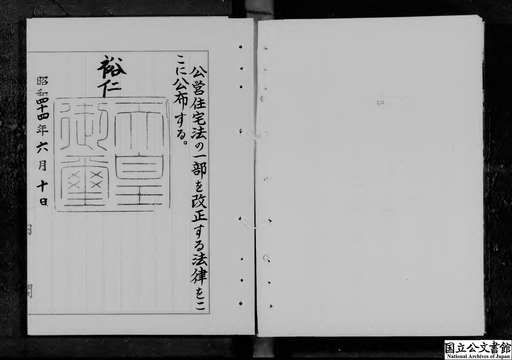 公営住宅法の一部を改正する法律をこ
こに公布する。
裕仁
天皇
御璽
昭和四十四年六月十日
国立公文書館
National Archives of Japan